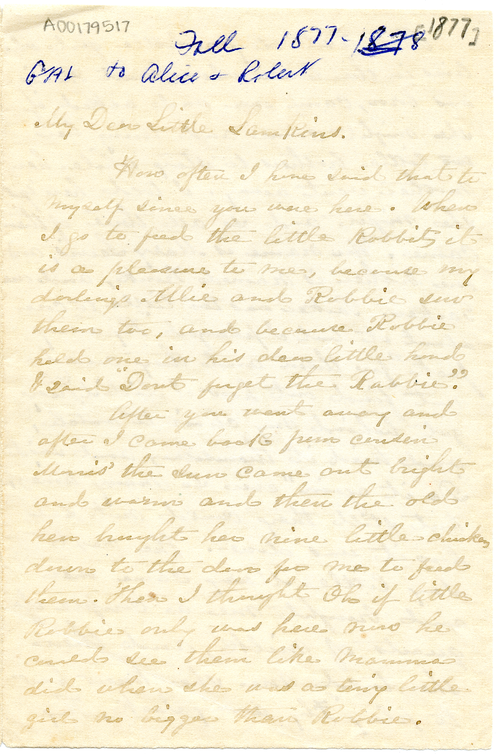 A00179517
Fall 1877-1878 [1877]
GAL to Alice & Robert
My Dear Little Lamkins.
How often I have said that to
myself since you were here. When
I go to feed the little Rabbits, it
is a pleasure to me, because my
darlings Allie and Robbie saw
them too, and because Robbie
held one in his dear little hand
& said "Dont forget the Rabbie".
After you went away and
after I came back from cousin
Morris' the sun came out bright
and warm and then the old
hen brought her nine little chickens
down to the door for me to feed
them. Then I thought Oh if little
Robbie only was here now he
could see them like Mamma
did when she was a tiny little
girl no bigger than Robbie.